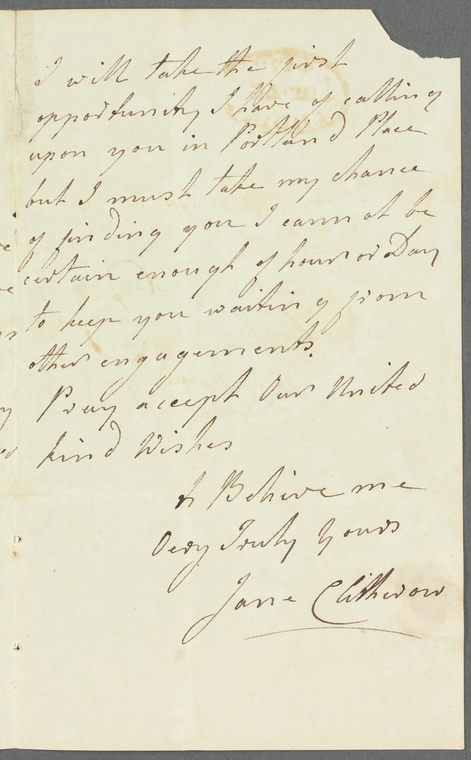 I will take the first
opportunity I have of calling
upon you in Portland Place
but I must take my chance
of finding you I cannot be
certain enough of hour or Day
to keep you waiting from
other engagements.
Pray accept Our United
kind Wishes
& Believe me
Very Truly Yours
Jane Clitherow